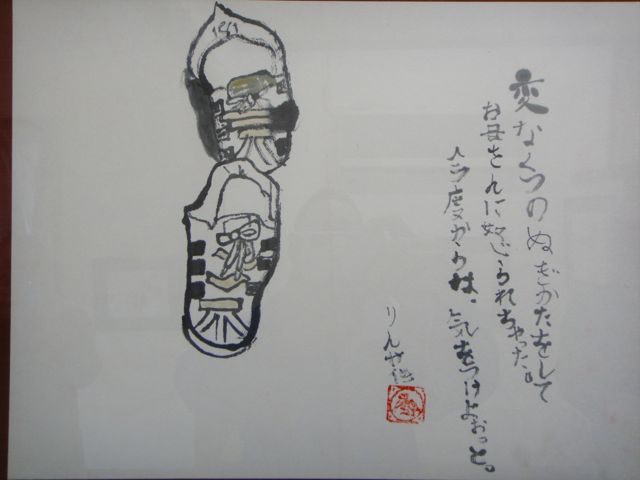 変なくつのぬぎかたをして
お母さんに怒られちゃった。
今度からは、気をつけよおっと。